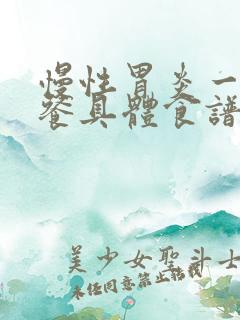 慢性胃炎一
餐具體食譜
美少女聖斗士
未經同意禁止轉載